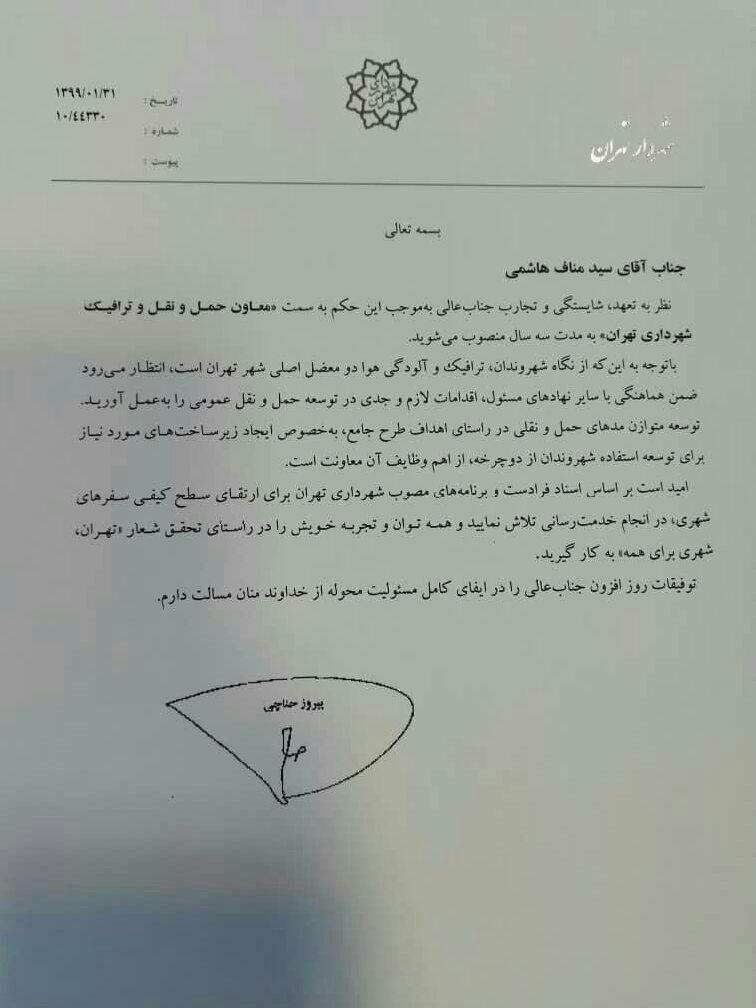 شهردار تهران
تاریخ : ۱۳۹۹/۰۱/۳۱
شماره : ۱۰/۴۴۳۳۰
پیوست :
بسمه تعالی
جناب آقای سید مناف هاشمی
نظر به تعهد، شایستگی و تجارب جناب‌عالی به‌موجب این حکم به سمت «معاون حمل و نقل و ترافیک
شهرداری تهران» به مدت سه سال منصوب می‌شوید.
باتوجه به این که از نگاه شهروندان، ترافیک و آلودگی هوا دو معضل اصلی شهر تهران است، انتظار می‌رود
ضمن هماهنگی با سایر نهادهای مسئول، اقدامات لازم و جدی در توسعه حمل و نقل عمومی را به‌عمل آورید.
توسعه متوازن مدهای حمل و نقلی در راستای اهداف طرح جامع، به‌خصوص ایجاد زیرساخت‌های مورد نیاز
برای توسعه استفاده شهروندان از دوچرخه، از اهم وظایف آن معاونت است.
امید است بر اساس اسناد فرادست و برنامه‌های مصوب شهرداری تهران برای ارتقای سطح کیفی سفرهای
شهری، در انجام خدمت‌رسانی تلاش نمایید و همه توان و تجربه خویش را در راستای تحقق شعار «تهران،
شهری برای همه» به کار گیرید.
توفیقات روز افزون جناب‌عالی را در ایفای کامل مسئولیت محوله از خداوند منان مسالت دارم.
پیروز حناچی